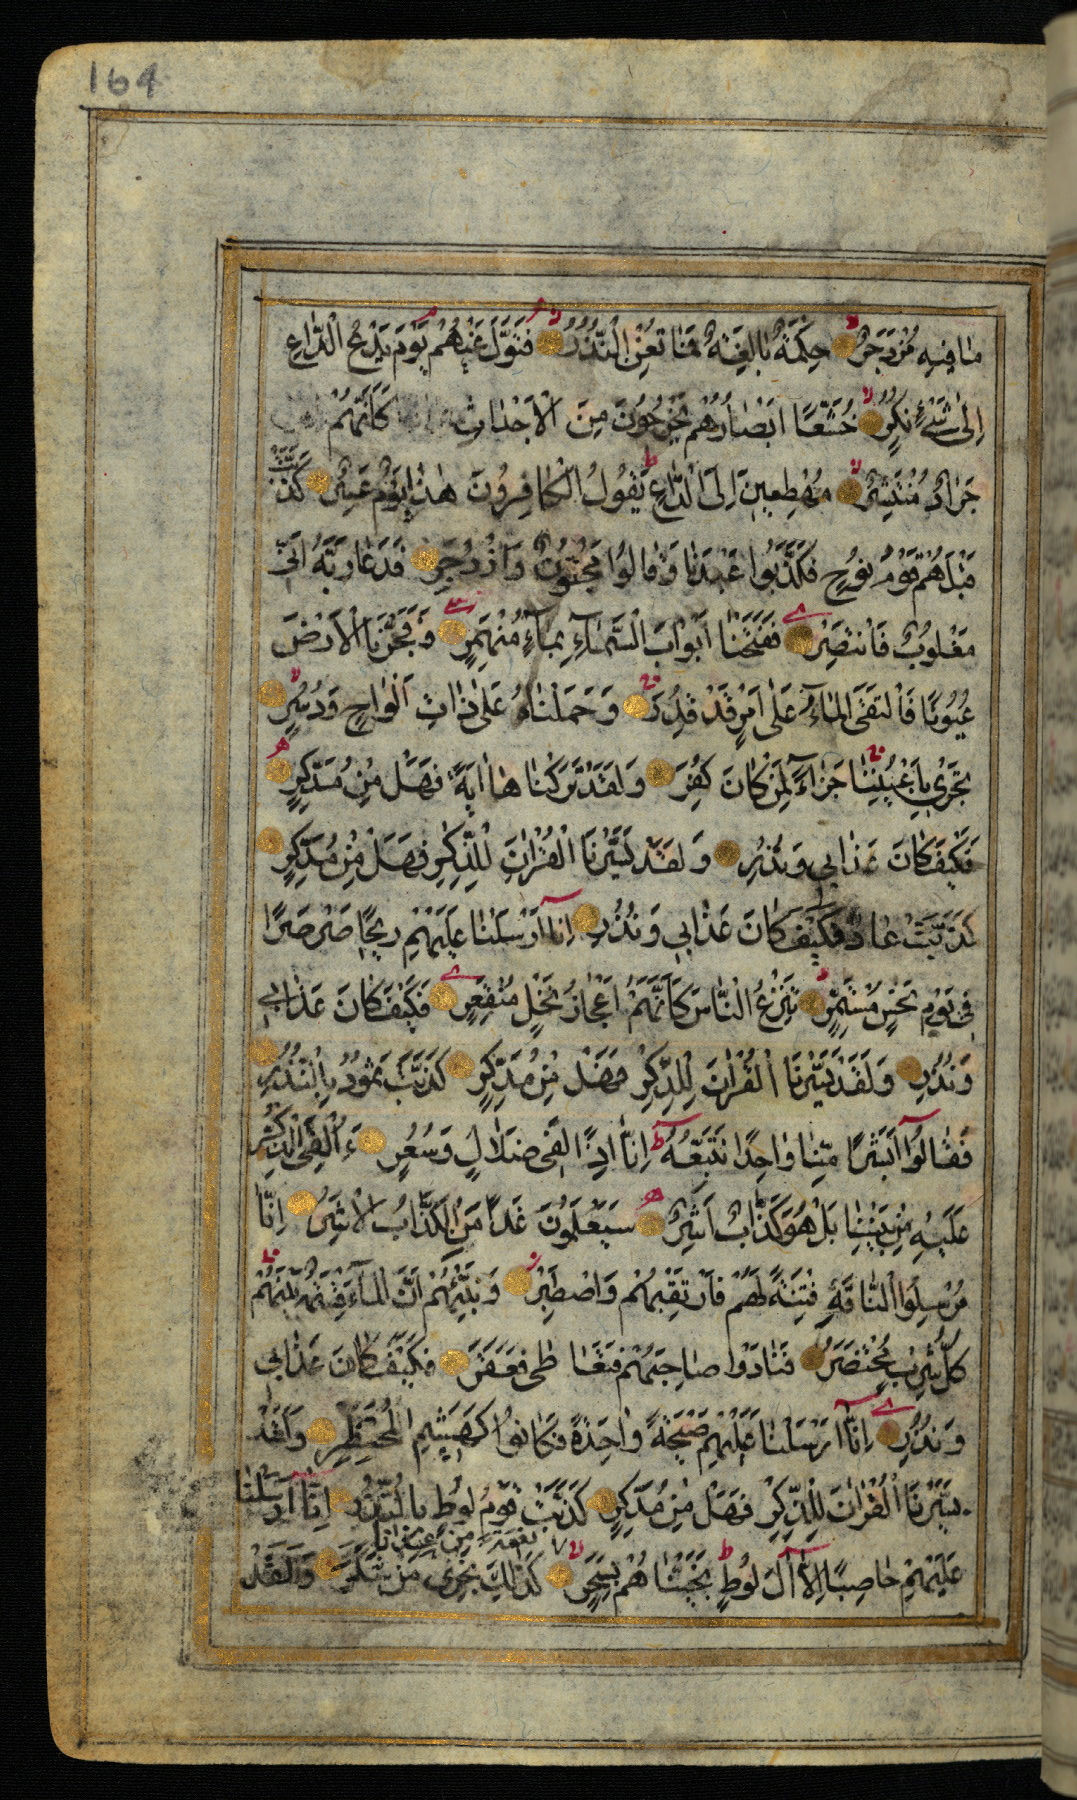 164
مَا فِيهِ مُزْدَجَرٌ حِكْمَةٌ بَالِغَةٌ فَمَا تُغْنِ النُّذُرُ فَتَوَلَّ عَنْهُمْ يَوْمَ يَدْعُ الدَّاعِ
إِلَىٰ شَيْءٍ نُكُرٍ خُشَّعًا أَبْصَارُهُمْ يَخْرُجُونَ مِنَ الْأَجْدَاثِ كَأَنَّهُمْ
جَرَادٌ مُنْتَشِرٌ مُهْطِعِينَ إِلَى الدَّاعِ يَقُولُ الْكَافِرُونَ هٰذَا يَوْمٌ عَسِرٌ كَذَّبَتْ
قَبْلَهُمْ قَوْمُ نُوحٍ فَكَذَّبُوا عَبْدَنَا وَقَالُوا مَجْنُونٌ وَازْدُجِرَ فَدَعَا رَبَّهُ أَنِّي
مَغْلُوبٌ فَانْتَصِرْ فَفَتَحْنَا أَبْوَابَ السَّمَاءِ بِمَاءٍ مُنْهَمِرٍ وَفَجَّرْنَا الْأَرْضَ
عُيُونًا فَالْتَقَى الْمَاءُ عَلَىٰ أَمْرٍ قَدْ قُدِرَ وَحَمَلْنَاهُ عَلَىٰ ذَاتِ أَلْوَاحٍ وَدُسُرٍ
تَجْرِي بِأَعْيُنِنَا جَزَاءً لِمَنْ كَانَ كُفِرَ وَلَقَدْ تَرَكْنَاهَا آيَةً فَهَلْ مِنْ مُدَّكِرٍ
فَكَيْفَ كَانَ عَذَابِي وَنُذُرِ وَلَقَدْ يَسَّرْنَا الْقُرْآنَ لِلذِّكْرِ فَهَلْ مِنْ مُدَّكِرٍ
كَذَّبَتْ عَادٌ فَكَيْفَ كَانَ عَذَابِي وَنُذُرِ إِنَّا أَرْسَلْنَا عَلَيْهِمْ رِيحًا صَرْصَرًا
فِي يَوْمِ نَحْسٍ مُسْتَمِرٍّ تَنْزِعُ النَّاسَ كَأَنَّهُمْ أَعْجَازُ نَخْلٍ مُنْقَعِرٍ فَكَيْفَ كَانَ عَذَابِي
وَنُذُرِ وَلَقَدْ يَسَّرْنَا الْقُرْآنَ لِلذِّكْرِ فَهَلْ مِنْ مُدَّكِرٍ كَذَّبَتْ ثَمُودُ بِالنُّذُرِ
فَقَالُوا أَبَشَرًا مِنَّا وَاحِدًا نَتَّبِعُهُ إِنَّا إِذًا لَفِي ضَلَالٍ وَسُعُرٍ ءَأُلْقِيَ الذِّكْرُ
عَلَيْهِ مِنْ بَيْنِنَا بَلْ هُوَ كَذَّابٌ أَشِرٌ سَيَعْلَمُونَ غَدًا مَنِ الْكَذَّابُ الْأَشِرُ إِنَّا
مُرْسِلُوا النَّاقَةِ فِتْنَةً لَهُمْ فَارْتَقِبْهُمْ وَاصْطَبِرْ وَنَبِّئْهُمْ أَنَّ الْمَاءَ قِسْمَةٌ بَيْنَهُمْ
كُلُّ شِرْبٍ مُحْتَضَرٌ فَنَادَوْا صَاحِبَهُمْ فَتَعَاطَىٰ فَعَقَرَ فَكَيْفَ كَانَ عَذَابِي
وَنُذُرِ إِنَّا أَرْسَلْنَا عَلَيْهِمْ صَيْحَةً وَاحِدَةً فَكَانُوا كَهَشِيمِ الْمُحْتَظِرِ وَلَقَدْ
يَسَّرْنَا الْقُرْآنَ لِلذِّكْرِ فَهَلْ مِنْ مُدَّكِرٍ كَذَّبَتْ قَوْمُ لُوطٍ بِالنُّذُرِ إِنَّا أَرْسَلْنَا
نِعْمَةً مِنْ عِنْدِنَا
عَلَيْهِمْ حَاصِبًا إِلَّا آلَ لُوطٍ نَجَّيْنَاهُمْ بِسَحَرٍ كَذٰلِكَ نَجْزِي مَنْ شَكَرَ وَلَقَدْ